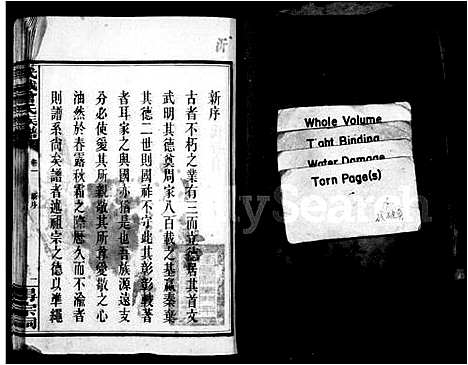 新序
古者不朽之業有三而立德居其首文
武明其德奠周家八百載之基嬴秦棄
其德二世則國祚不守此其彰彰較著
者耳家之與國亦猶是也吾族源遠支
分必使愛其所親敬其所尊愛敬之心
油然於春露秋霜之際歷久而不渝者
則譜系尚矣譜者述祖宗之德以準繩
卷一
新序
宗祠
Whole Volume
Tight Binding
Water Damage
Torn Page(s)